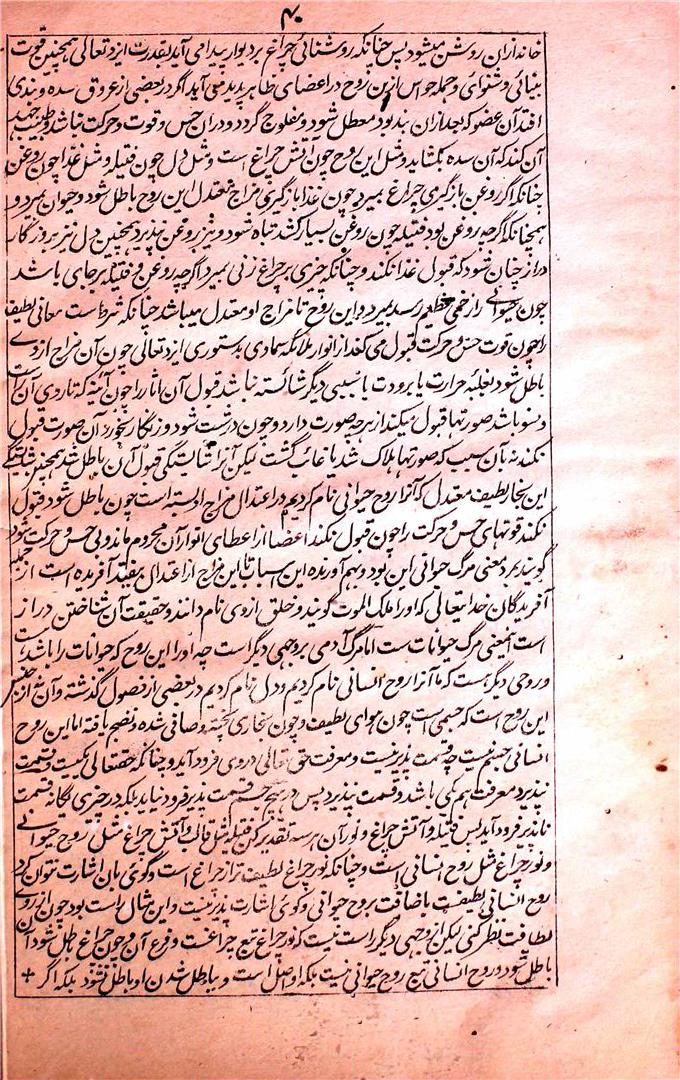 ۴۰
خانه ازان روشن میشود پس چنانکه روشنائی چراغ بر دیوار پیدا می آید بقدرت ایزد تعالی همچنین قوت
بینائی و شنوائی و جمله حواس ازین روح در اعضای ظاهر پدید می آید اگر در بعضی از عروق سده و بندی
افتد آن عضو که بعد ازان بند بود معطل شود و مفلوج گردد و دران حس و قوت و حرکت نباشد و طبیب جهد
آن کند که آن سده بکشاید و مثل این روح چون آتش چراغ است و مثل دل چون فتیله و مثل غذا چون روغن
چنانکه اگر روغن بازگیری چراغ بمیرد چون غذا بازگیری مزاج معتدل این روح باطل شود و حیوان بمیرد و
همچنانکه اگرچه روغن بود فتیله چون روغن بسیار کشد تباه شود و نیز روغن نپذیرد همچنین دل نیز بروزگار
دراز چنان شود که قبول غذا نکند و چنانکه چیزی بر چراغ زنی بمیرد اگرچه روغن و فتیله بر جای باشد
چون حیوانی را زخمی عظیم رسد بمیرد و این روح تا مزاج او معتدل میباشد چنانکه شرط است معانی لطیف
را چون قوت حس و حرکت قبول می کند از انوار ملائکه سماوی بدستوری ایزد تعالی چون آن مزاج از وی
باطل شود بغلبه حرارت یا برودت یا بسببی دیگر شائسته نباشد قبول آن اثار را چون آئینه که تا روی آن راست
و نسو باشد صورتها قبول میکند از هرچه صورت دارد و چون درشت شود و زنگار بخورد آن صورت قبول
نکند نه بآن سبب که صورتها هلاک شد یا غائب گشت لیکن آنرا شایستگی قبول آن باطل شد همچنین شایستگی
این بخار لطیف معتدل که آنرا روح حیوانی نام کردیم در اعتدال مزاج او بسته است چون باطل شود قبول
نکند قوتهای حس و حرکت را چون قبول نکند اعضا از اعطای انوار آن محروم ماند و بی حس و حرکت شود
گویند بمرد معنی مرگ حیوانی این بود و بهم آورنده این اسباب تا این مزاج از اعتدال بیفتد آفریده است از جمله
آفریدگان خدا یتعالی که او را ملک الموت گویند و خلق از وی نام دانند و حقیقت آن شناختن دراز
است اینمعنی مرگ حیوانات ست اما مرگ آدمی بر وجهی دیگر است چه او را این روح که حیوانات را باشد هست
و روحی دیگر هست که ما آنرا روح انسانی نام کردیم و دل نام کردیم در بعضی از فصول گذشته و آن نه از جنس
این روح است که جسمی است چون هوای لطیف و چون بخاری پخته و صافی شده و نضج یافته اما این روح
انسانی جسم نیست چه قسمت پذیر نیست و معرفت حق تعالی در وی فرود آید و چنانکه حقتعالی یکیست و قسمت
نپذیرد معرفت هم یکی باشد و قسمت نپذیرد پس در هیچ جسم قسمت پذیر فرود نیاید بلکه در چیزی یگانه قسمت
ناپذیر فرود آید پس فتیله و آتش چراغ و نور آن هر سه تقدیر کن فتیله مثل قالب و آتش چراغ مثل روح حیوانی
و نور چراغ مثل روح انسانی است و چنانکه نور چراغ لطیف تر از چراغ است و گوی بآن اشارت نتوان کرد
روح انسانی لطیفست باضافت بروح حیوانی و گوی اشارت پذیر نیست و این مثال راست بود چون از روی
لطافت نظر کنی لیکن از وجهی دیگر راست نیست که نور چراغ تبع چراغست و فرع آن و چون چراغ باطل شود آن
باطل شود و روح انسانی تبع روح حیوانی نیست بلکه او اصل است و بباطل شدن او باطل نشود بلکه اگر +